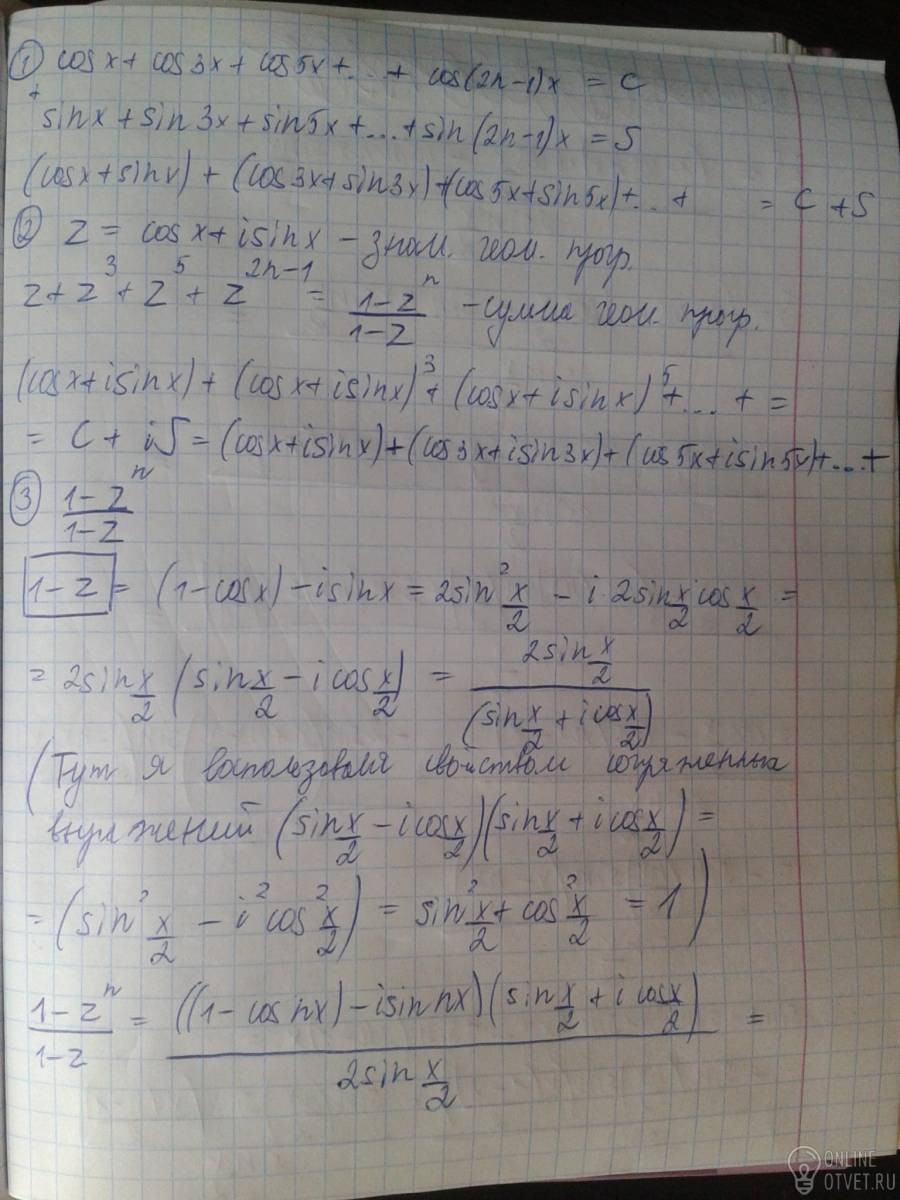 ① cos x + cos 3x + cos 5x + ... + cos(2n-1)x = C
+ sin x + sin 3x + sin 5x + ... + sin(2n-1)x = S
(cos x + sin x) + (cos 3x + sin 3x) + (cos 5x + sin 5x) + ... + = C + S
② z = cos x + i sin x - знам. геом. прогр.
z + z³ + z⁵ + z²ⁿ⁻¹ = (1-zⁿ)/(1-z) - сумма геом. прогр.
(cos x + i sin x) + (cos x + i sin x)³ + (cos x + i sin x)⁵ + ... + =
= C + iS = (cos x + i sin x) + (cos 3x + i sin 3x) + (cos 5x + i sin 5x) + ... +
③ (1-zⁿ)/(1-z)
1-z = (1-cos x) - i sin x = 2sin² x/2 - i·2sin x/2 cos x/2 =
= 2sin x/2 (sin x/2 - i cos x/2) = 2sin x/2 / (sin x/2 + i cos x/2)
(Тут я воспользовался свойством сопряженных
выражений (sin x/2 - i cos x/2)(sin x/2 + i cos x/2) =
= (sin² x/2 - i² cos² x/2) = sin² x/2 + cos² x/2 = 1)
(1-zⁿ)/(1-z) = ((1-cos nx) - i sin nx)(sin x/2 + i cos x/2) / 2sin x/2 =
ONLINE
OTVET.RU